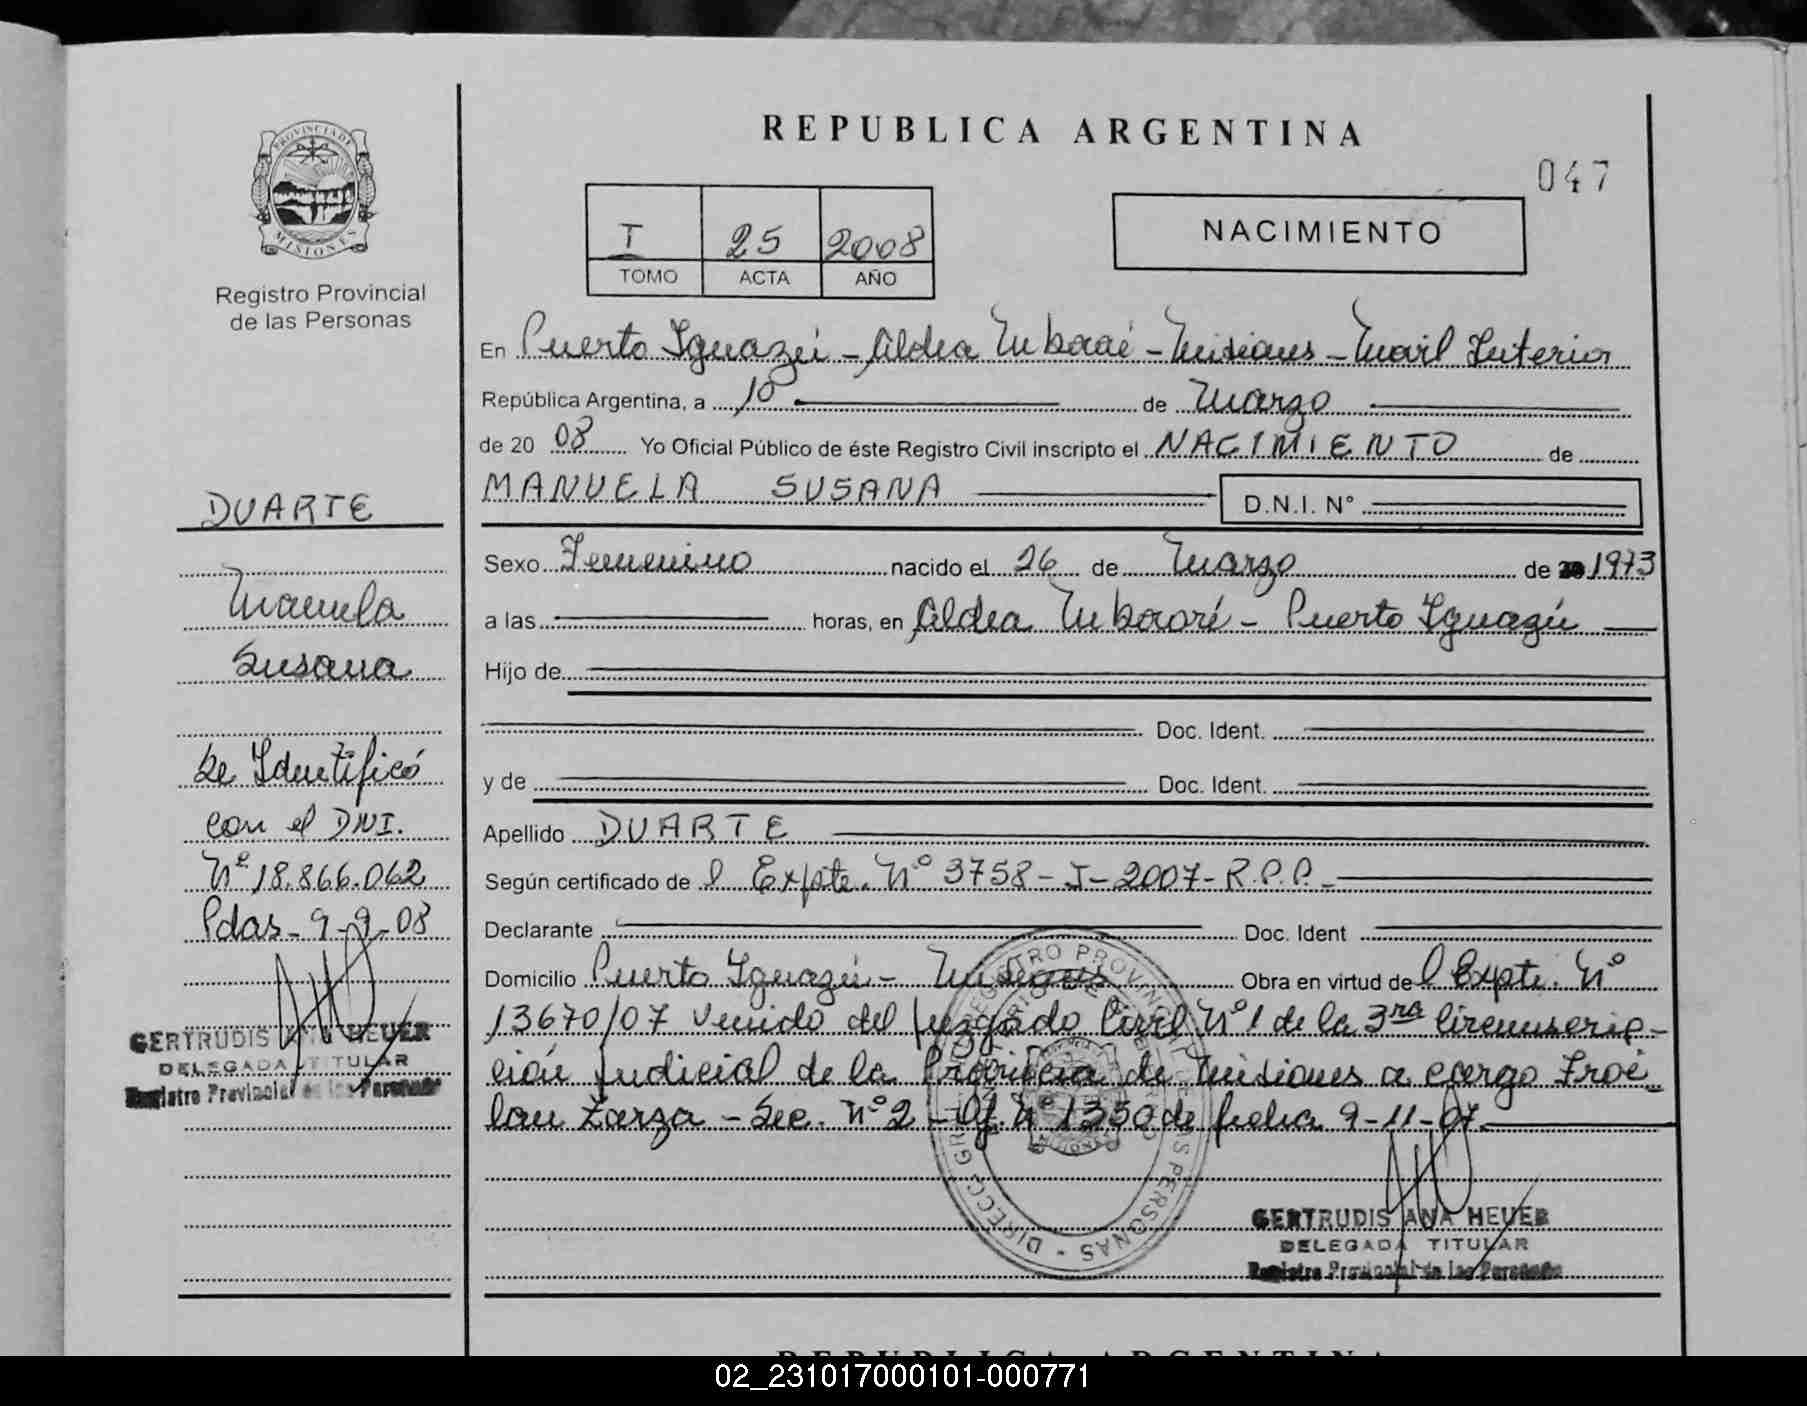 PROVINCIA DE
MISIONES
Registro Provincial
de las Personas
DUARTE
Manuela
Susana
Se Identificó
con el DNI.
Nº 18.866.062
Pdas- 9-9-08
GERTRUDIS ANA HEUER
DELEGADA TITULAR
Registro Provincial de las Personas
REPUBLICA ARGENTINA
047
I 25 2008
TOMO ACTA AÑO
NACIMIENTO
En Puerto Iguazú - Aldea Mbororé - Misiones - Móvil Interior
República Argentina, a 10 de Marzo
de 20 08 Yo Oficial Público de éste Registro Civil inscripto el NACIMIENTO de
MANUELA SUSANA D.N.I. N°
Sexo Femenino nacido el 26 de Marzo de 20 1973
a las horas, en Aldea Mbororé - Puerto Iguazú
Hijo de
Doc. Ident.
y de Doc. Ident.
Apellido DUARTE
Según certificado de l Expte. Nº 3758-J-2007-R.P.P.
Declarante Doc. Ident
Domicilio Puerto Iguazú - Misiones Obra en virtud de l Expte. Nº
13670/07 venido del Juzgado Civil Nº 1 de la 3ra Circunscrip-
ción Judicial de la Provincia de Misiones a cargo Froi-
lan Zarza - Sec. Nº 2 - Of. Nº 1330 de fecha 9-11-07
DIRECC GRAL REGISTRO PROVINCIAL DE LAS PERSONAS
GERTRUDIS ANA HEUER
DELEGADA TITULAR
Registro Provincial de las Personas
REPUBLICA ARGENTINA
02_231017000101-000771